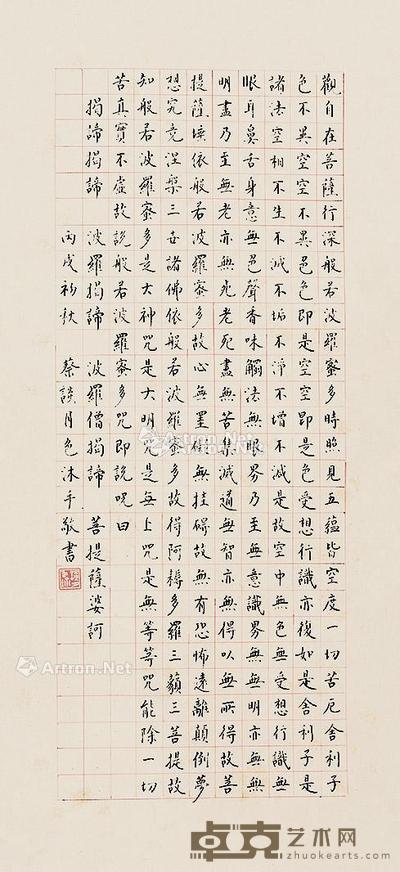 觀自在菩薩行深般若波羅蜜多時照見五蘊皆空度一切苦厄舍利子
色不異空空不異色色即是空空即是色受想行識亦復如是舍利子是
諸法空相不生不滅不垢不淨不增不減是故空中無色無受想行識無
眼耳鼻舌身意無色聲香味觸法無眼界乃至無意識界無無明亦無無
明盡乃至無老亦無死老死盡無苦集滅道無智亦無得以無所得故菩
提薩埵依般若波羅蜜多故心無罣礙無挂礙故無有恐怖遠離顛倒夢
想究竟涅槃三世諸佛依般若波羅蜜多故得阿耨多羅三藐三菩提故
知般若波羅蜜多是大神咒是大明咒是無上咒是無等等咒能除一切
苦真實不虛故說般若波羅蜜多咒即說咒曰
揭諦揭諦 波羅揭諦 波羅僧揭諦 菩提薩婆訶
丙戌初秋 蔡談月色沐手敬書
Artron.Net
Artron.Net
卓克艺术网
zhuokearts.com